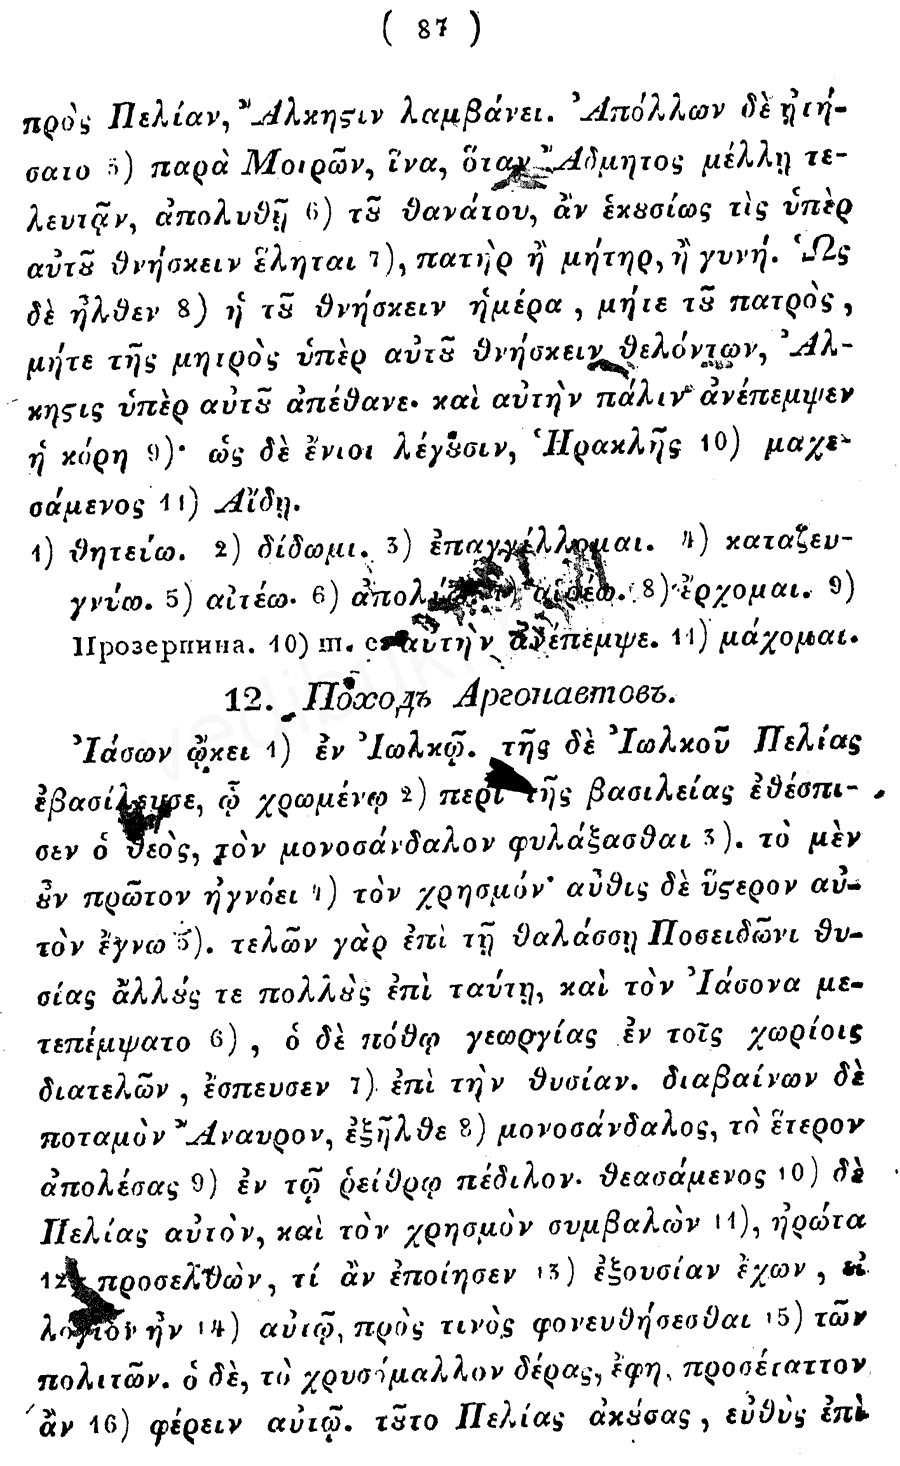 ( 87 )
πρὸς Πελίαν, Ἄλκηϛιν λαμβάνει. Ἀπόλλων δὲ ᾐτή-
σατο 5) παρὰ Μοιρῶν, ἵνα, ὅταν Ἄδμητος μέλλῃ τε-
λευτᾷν, ἀπολυθῇ 6) τȣ͂ θανάτου, ἂν ἑκȣσίως τὶς ὑπὲρ
αὐτȣ͂ θνήσκειν ἕληται 7), πατὴρ ἢ μήτηρ, ἢ γυνή. Ὡς
δὲ ἦλθεν 8) ἡ τȣ͂ θνήσκειν ἡμέρα, μήτε τȣ͂ πατρὸς,
μήτε τῆς μητρὸς ὑπὲρ αὐτȣ͂ θνήσκειν θελόντων, Ἀλ-
κηϛις ὑπὲρ αὐτȣ͂ ἀπέθανε· καὶ αὐτὴν πάλιν ἀνέπεμψεν
ἡ κόρη 9)· ὡς δὲ ἔνιοι λέγȣσιν, Ἡρακλῆς 10) μαχε-
σάμενος 11) Αἴδῃ.
1) θητεύω. 2) δίδωμι. 3) ἐπαγγέλλομαι. 4) καταζευ-
γνύω. 5) αἰτέω. 6) ἀπολύω. 7) αἱρέω. 8) ἔρχομαι. 9)
Прозерпина. 10) т. е. αὐτὴν ἀνέπεμψε. 11) μάχομαι.
12. Походъ Аргонавтовъ.
Ἰάσων ᾤκει 1) ἐν Ἰωλκῷ. τῆς δὲ Ἰωλκοῦ Πελίας
ἐβασίλευσε, ᾧ χρωμένῳ 2) περὶ τῆς βασιλείας ἐθέσπι-
σεν ὁ θεὸς, τὸν μονοσάνδαλον φυλάξασθαι 3). τὸ μὲν
ȣ̓͂ν πρῶτον ἠγνόει 4) τὸν χρησμόν· αὖθις δὲ ὕϛερον αὐ-
τὸν ἔγνω 5). τελῶν γὰρ ἐπὶ τῇ θαλάσσῃ Ποσειδῶνι θυ-
σίας ἄλλȣς τε πολλȣ̀ς ἐπὶ ταύτῃ, καὶ τὸν Ἰάσονα με-
τεπέμψατο 6), ὁ δὲ πόθῳ γεωργίας ἐν τοῖς χωρίοις
διατελῶν, ἔσπευσεν 7) ἐπὶ τὴν θυσίαν. διαβαίνων δὲ
ποταμὸν Ἄναυρον, ἐξῆλθε 8) μονοσάνδαλος, τὸ ἕτερον
ἀπολέσας 9) ἐν τῷ ῥείθρῳ πέδιλον. θεασάμενος 10) δὲ
Πελίας αὐτὸν, καὶ τὸν χρησμὸν συμβαλὼν 11), ἠρώτα
12) προσελθὼν, τί ἂν ἐποίησεν 13) ἐξουσίαν ἔχων, εἰ
λογιον ἦν 14) αὐτῷ, πρὸς τινὸς φονευθήσεσθαι 15) τῶν
πολιτῶν. ὁ δὲ, τὸ χρυσόμαλλον δέρας, ἔφη, προσέταττον
ἂν 16) φέρειν αὐτῷ. τȣ͂το Πελίας ἀκȣ́σας, εὐθὺς ἐπὶ